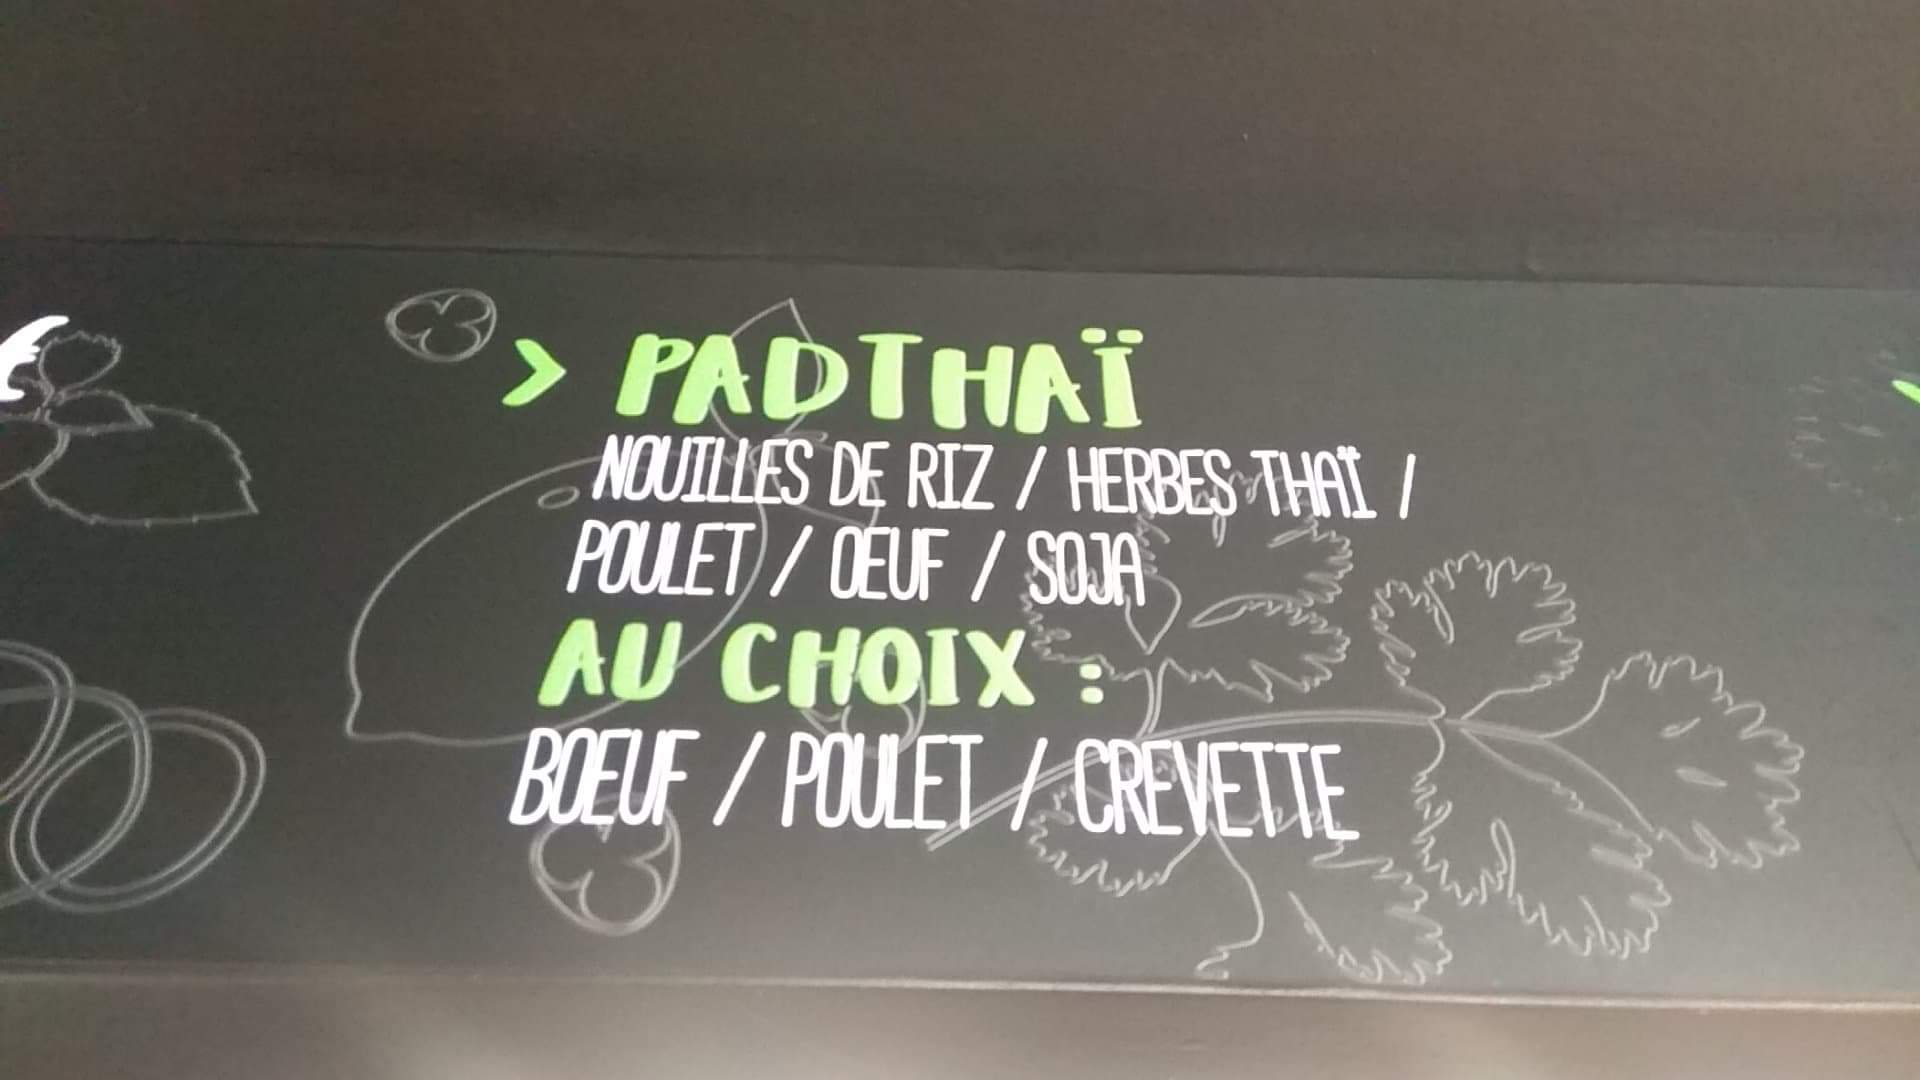 > PADTHAÏ
NOUILLES DE RIZ / HERBES THAÏ /
POULET / OEUF / SOJA
AU CHOIX :
BOEUF / POULET / CREVETTE